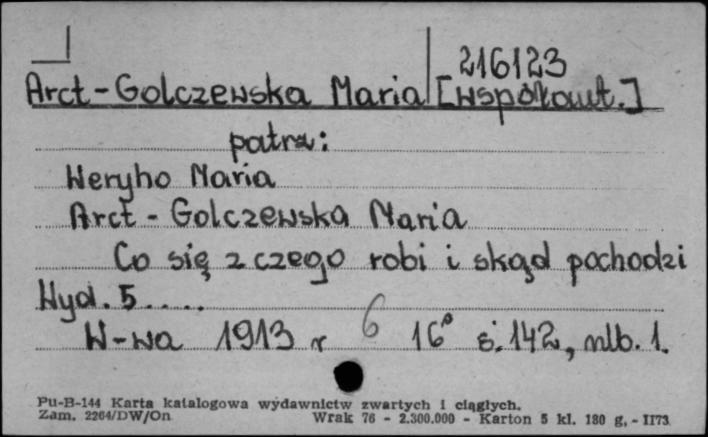 216123
Arct-Golczewska Maria [współaut.]
patrz:
Weryho Maria
Arct-Golczewska Maria
Co się z czego robi i skąd pochodzi
Wyd. 5.....
W-wa 1913 r 6 16° s. 142, nlb. 1.
Pu-B-144 Karta katalogowa wydawnictw zwartych i ciągłych.
Zam. 2264/DW/On Wrak 76 - 2.300.000 - Karton 5 kl. 180 g, - II73